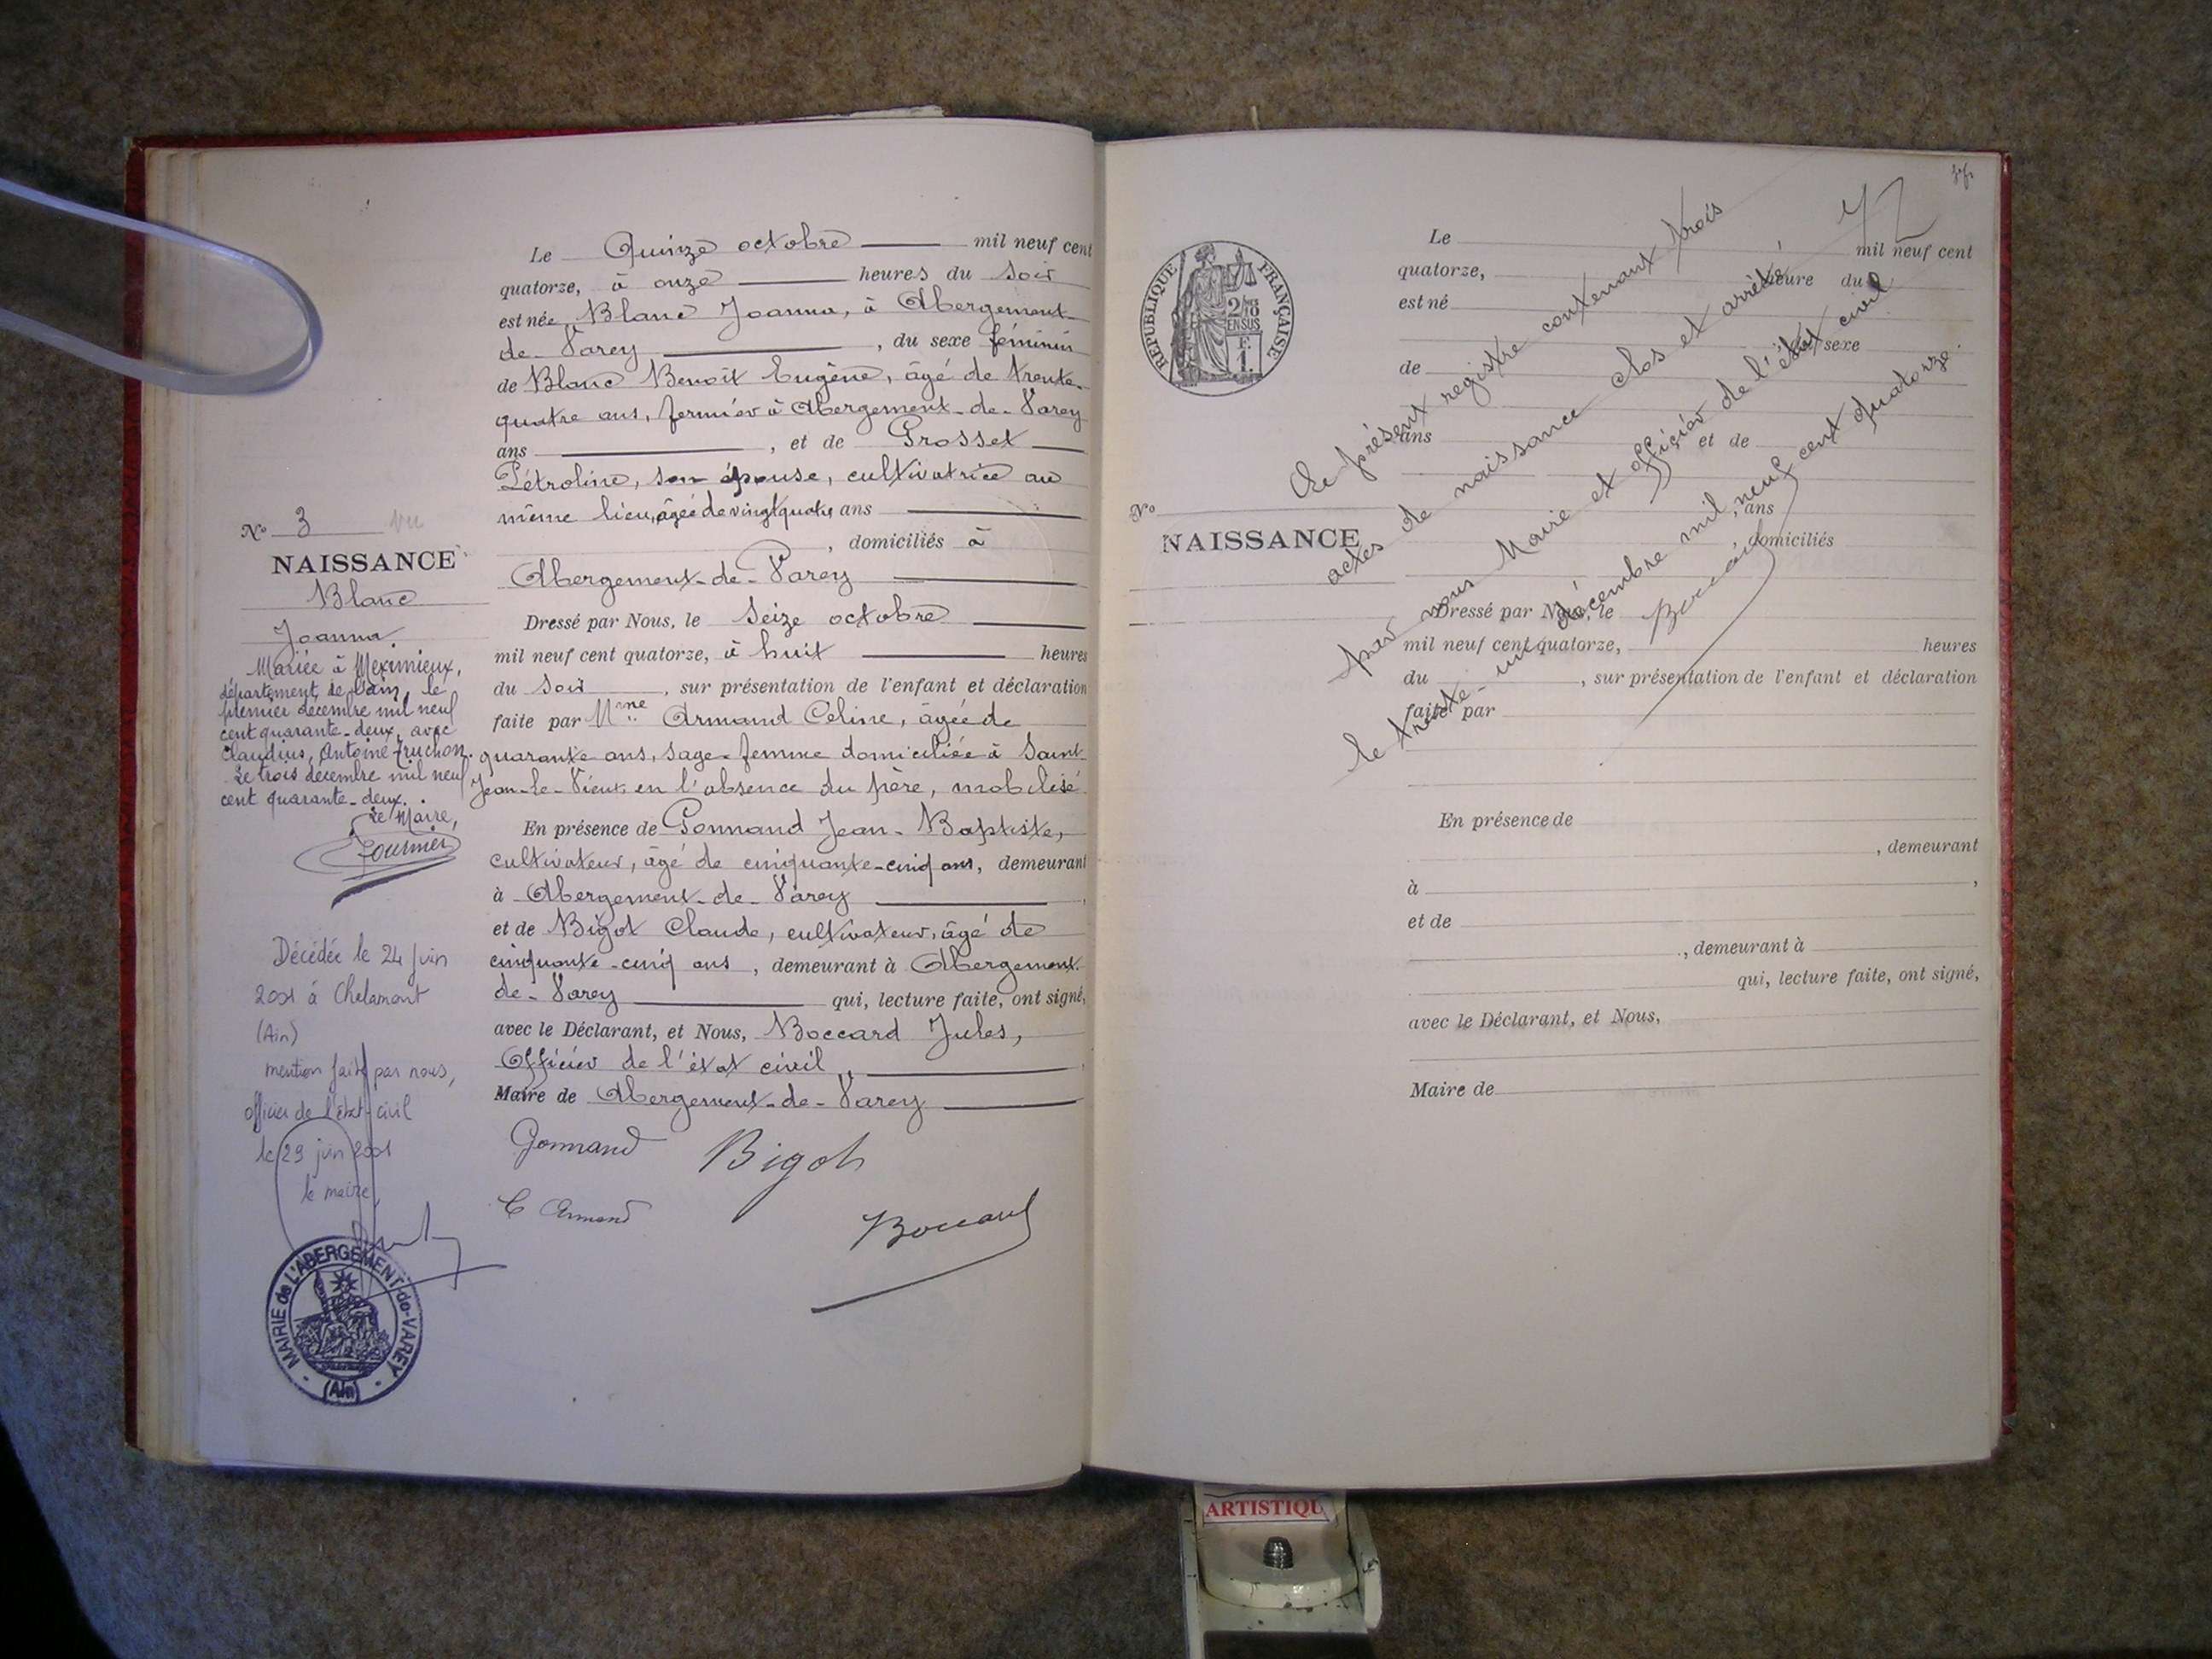 Le Quinze octobre mil neuf cent
quatorze, à onze heures du soir
est née Blanc Joanna, à Abergement-
de-Varey, du sexe féminin
de Blanc Benoît Eugène, âgé de trente-
quatre ans, fermier à Abergement-de-Varey
ans, et de Grosset
Pétroline, son épouse, cultivatrice au
même lieu, âgée de vingt quatre ans
, domiciliés à
Abergement-de-Varey
Dressé par Nous, le Seize octobre
mil neuf cent quatorze, à huit heures
du soir, sur présentation de l'enfant et déclaration
faite par Mme Armand Céline, âgée de
quarante ans, sage-femme domiciliée à Saint-
Jean-le-Vieux en l'absence du père, mobilisé.
En présence de Gonnand Jean-Baptiste,
cultivateur, âgé de cinquante-cinq ans, demeurant
à Abergement-de-Varey,
et de Bigot Claude, cultivateur, âgé de
cinquante-cinq ans, demeurant à Abergement-
de-Varey qui, lecture faite, ont signé,
avec le Déclarant, et Nous, Boccard Jules,
Officier de l'état civil,
Maire de Abergement-de-Varey
Gonnand Bigot
C Armand
Boccard
No 3 vu
NAISSANCE
Blanc
Joanna
Mariée à Meximieux,
département de l'Ain, le
premier décembre mil neuf
cent quarante-deux, avec
Claudius, Antoine Truchon.
Le trois décembre mil neuf
cent quarante-deux.
Le Maire,
Fournier
Décédée le 24 juin
2001 à Chalamont
(Ain)
mention faite par nous,
officier de l'état-civil
le 29 juin 2001
le maire,
MAIRIE de L'ABERGEMENT-de-VAREY
(Ain)
72
RÉPUBLIQUE FRANÇAISE
2/10
EN SUS
F.
1.
No
NAISSANCE
Le mil neuf cent
quatorze, heure du
est né
du sexe
de
ans et de
, ans
, domiciliés
Dressé par Nous, le
mil neuf cent quatorze, heures
du , sur présentation de l'enfant et déclaration
faite par
En présence de
, demeurant
à ,
et de
, demeurant à
qui, lecture faite, ont signé,
avec le Déclarant, et Nous,
Maire de
Le présent registre contenant trois
actes de naissance clos et arrêté
par nous Maire et officier de l'état civil
le trente-un décembre mil neuf cent quatorze.
Boccard
ARTISTIQU